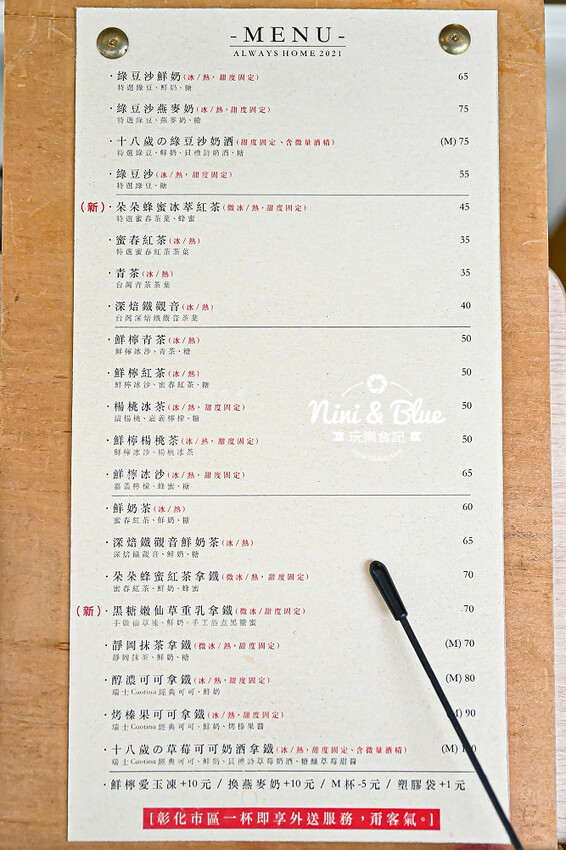 -MENU-
ALWAYS HOME 2021
·綠豆沙鮮奶(冰/熱,甜度固定) 65
特選綠豆、鮮奶、糖
·綠豆沙燕麥奶(冰/熱,甜度固定) 75
特選綠豆、燕麥奶、糖
·十八歲の綠豆沙奶酒(甜度固定、含微量酒精) (M) 75
特選綠豆、鮮奶、貝禮詩奶酒、糖
·綠豆沙(冰/熱,甜度固定) 55
特選綠豆、糖
(新)·朵朵蜂蜜冰萃紅茶(微冰/熱,甜度固定) 45
特選蜜春茶葉、蜂蜜
·蜜春紅茶(冰/熱) 35
特選蜜春紅茶茶葉
·青茶(冰/熱) 35
台灣青茶茶葉
·深焙鐵觀音(冰/熱) 40
台灣深焙鐵觀音茶葉
·鮮檸青茶(冰/熱) 50
鮮檸冰沙、青茶、糖
·鮮檸紅茶(冰/熱) 50
鮮檸冰沙、蜜春紅茶、糖
·楊桃冰茶(冰/熱,甜度固定) 50
漬楊桃、嘉義檸檬、糖
·鮮檸楊桃茶(冰/熱,甜度固定) 50
鮮檸冰沙、楊桃冰茶
·鮮檸冰沙(冰/熱,甜度固定) 65
嘉義檸檬、蜂蜜、糖
·鮮奶茶(冰/熱) 60
蜜春紅茶、鮮奶、糖
·深焙鐵觀音鮮奶茶(冰/熱) 65
深焙鐵觀音、鮮奶、糖
·朵朵蜂蜜紅茶拿鐵(微冰/熱,甜度固定) 70
蜜春紅茶、鮮奶、蜂蜜
(新)·黑糖嫩仙草重乳拿鐵(微冰/甜度固定) 70
手做仙草凍、鮮奶、手工熬煮黑糖蜜
·靜岡抹茶拿鐵(微冰/熱,甜度固定) (M) 70
靜岡抹茶、鮮奶、糖
·醇濃可可拿鐵(冰/熱,甜度固定) (M) 80
瑞士Caotina經典可可、鮮奶
·烤榛果可可拿鐵(冰/熱,甜度固定) 90
瑞士Caotina經典可可、鮮奶、烤榛果醬
·十八歲の草莓可可奶酒拿鐵(冰/熱,甜度固定、含微量酒精) (M)
瑞士Caotina經典可可、鮮奶、貝禮詩草莓奶酒、糖釀草莓甜醬
·鮮檸愛玉凍+10元 / 換燕麥奶+10元 / M杯-5元 / 塑膠袋+1元
[彰化市區一杯即享外送服務,甭客氣。]
Nini & Blue
玩樂食記